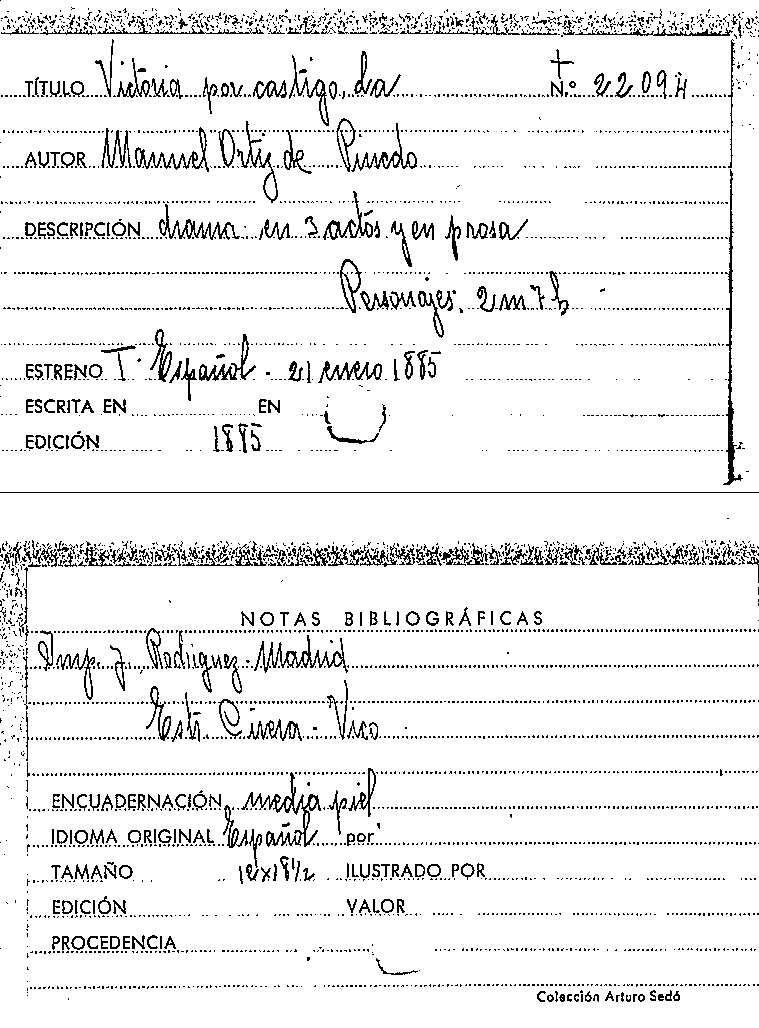 TÍTULO Victoria por castigo, La N.º 22094
AUTOR Manuel Ortiz de Pinedo
DESCRIPCIÓN drama en 3 actos y en prosa
Personajes: 2 m 7 h
ESTRENO T. Español - 21 enero 1885
ESCRITA EN EN
EDICIÓN 1885
NOTAS BIBLIOGRÁFICAS
Imp. J. Rodriguez - Madrid
Estr. - Vico
ENCUADERNACIÓN media piel
IDIOMA ORIGINAL Español por
TAMAÑO 12x18½ ILUSTRADO POR
EDICIÓN VALOR
PROCEDENCIA
Colección Arturo Sedó